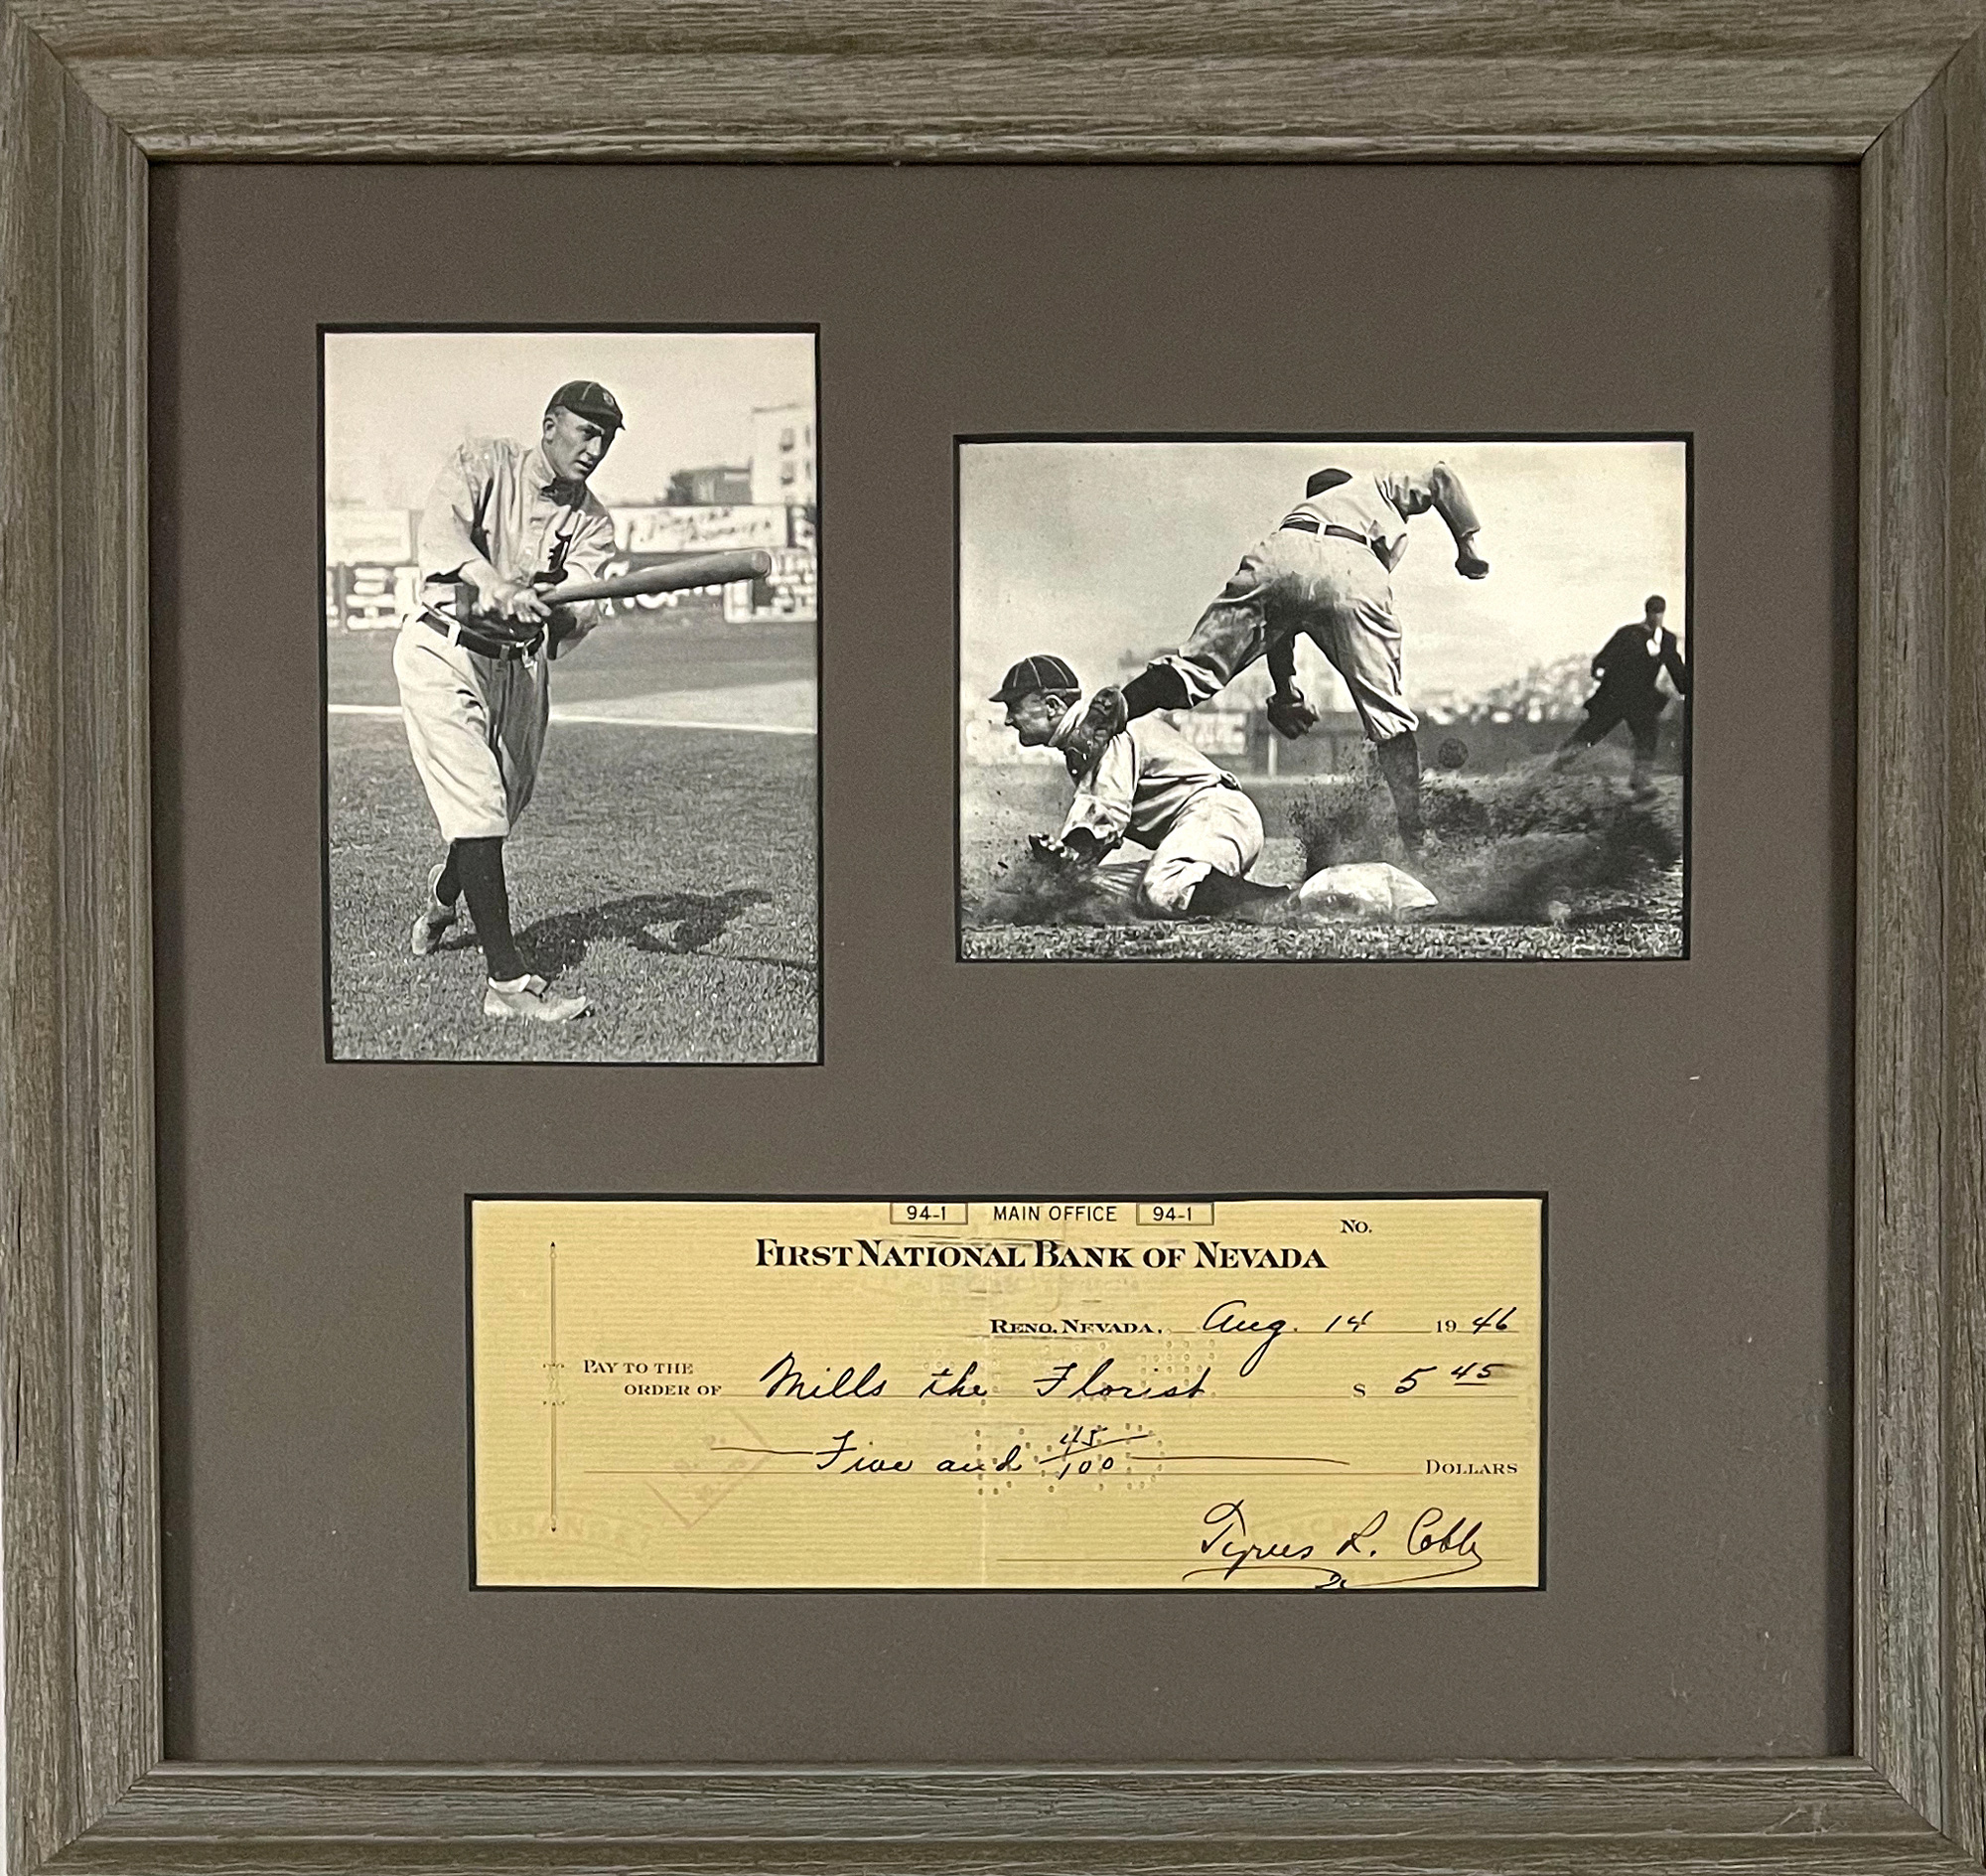 94-1 MAIN OFFICE 94-1
No.
FIRST NATIONAL BANK OF NEVADA
RENO, NEVADA, Aug. 14 19 46
PAY TO THE
ORDER OF Mills the Florist $ 5 45
Five and 45/100 DOLLARS
Tyrus R. Cobb